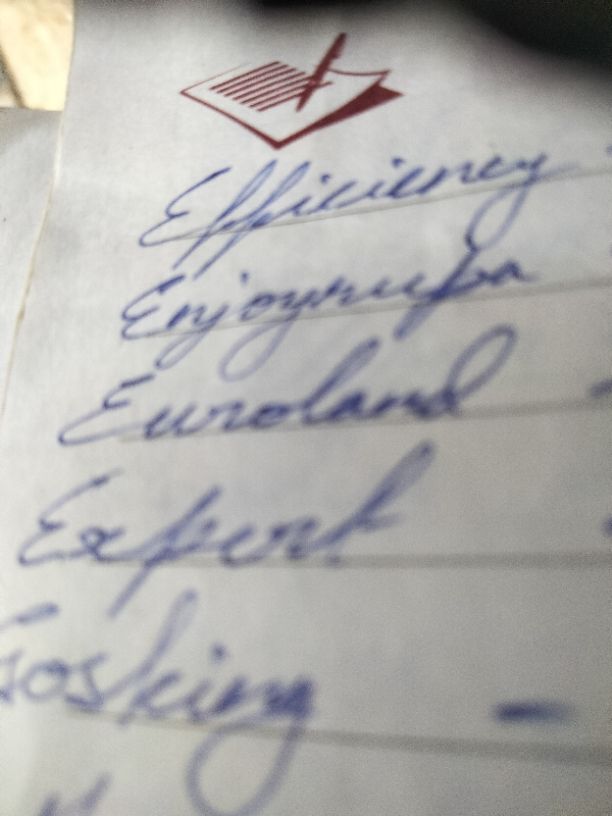 Efficiency
Enjoyrupa
Euroland
Expert
Gosking -